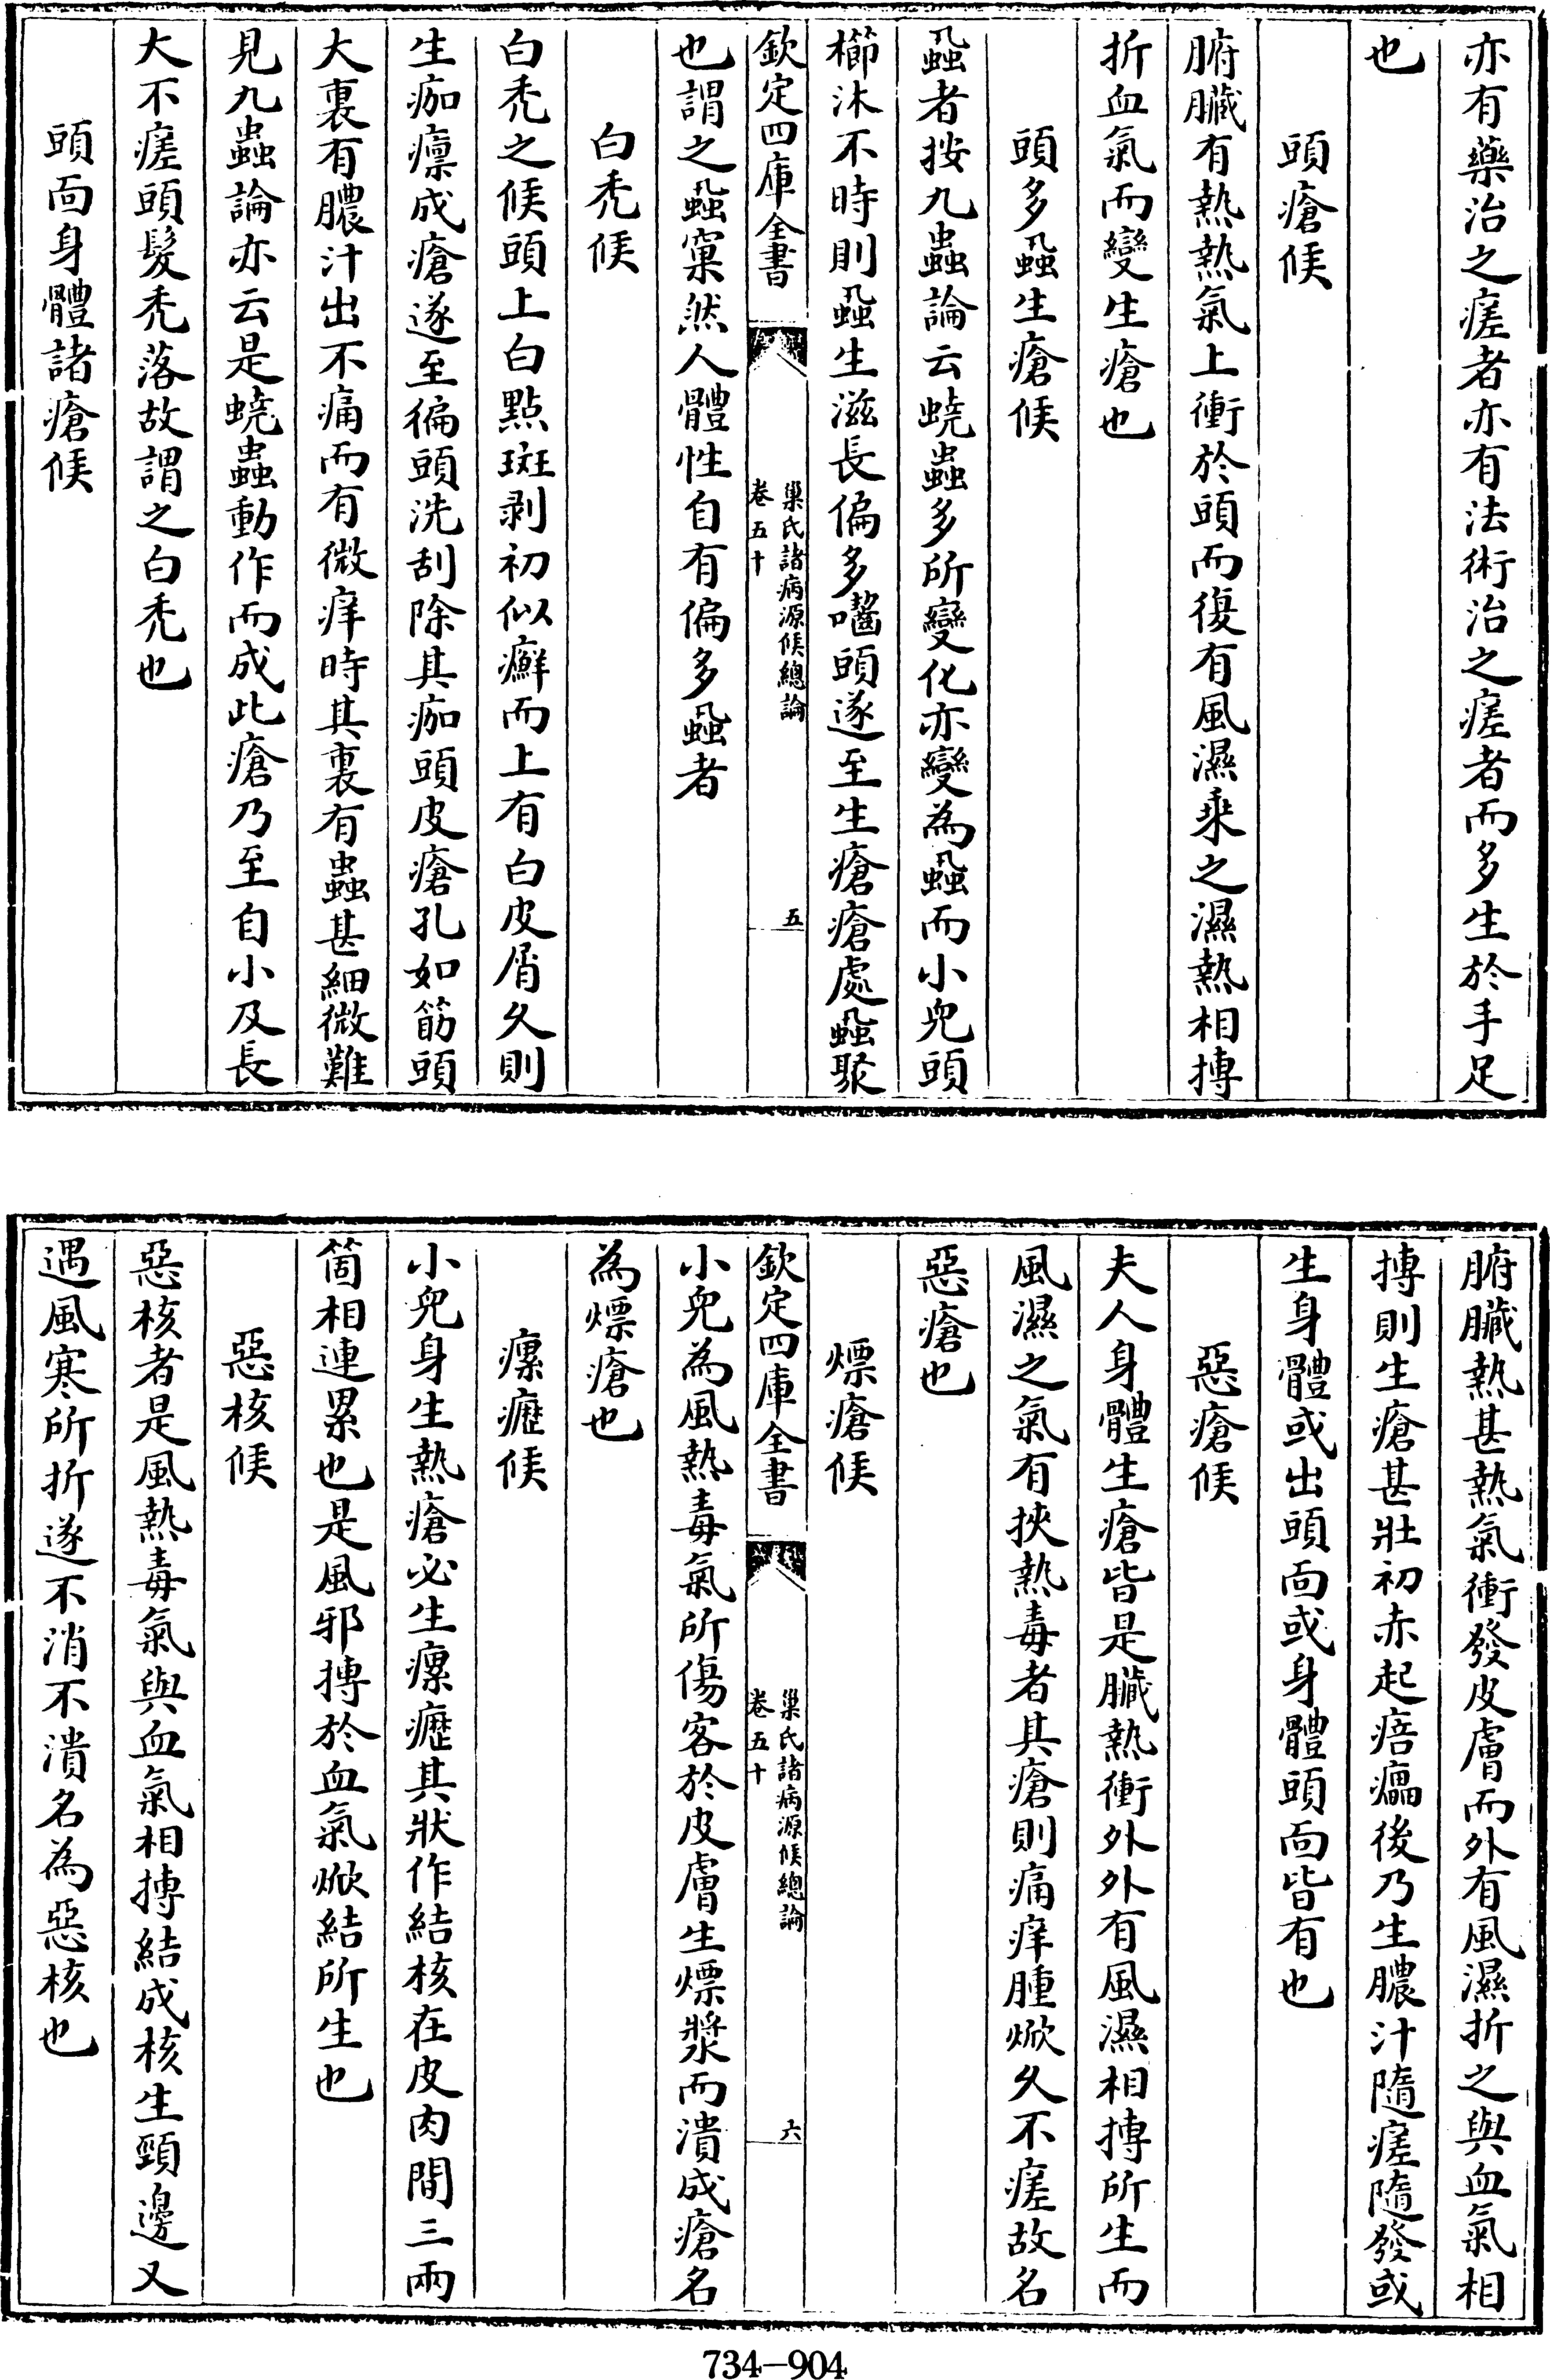 亦有藥治之瘥者亦有法術治之瘥者而多生於手足
也
頭瘡候
腑臟有熱熱氣上衝於頭而復有風濕乘之濕熱相搏
折血氣而變生瘡也
頭多蝨生瘡候
蝨者按九蟲論云蟯蟲多所變化亦變為蝨而小兒頭
櫛沐不時則蝨生滋長偏多囓頭遂至生瘡瘡處蝨聚
欽定四庫全書
巢氏諸病源候總論
卷五十
五
也謂之蝨窠然人體性自有偏多蝨者
白禿候
白禿之候頭上白點斑剥初似癬而上有白皮屑久則
生痂㿋成瘡遂至徧頭洗刮除其痂頭皮瘡孔如筯頭
大裏有膿汁出不痛而有微痒時其裏有蟲甚細微難
見九蟲論亦云是蟯蟲動作而成此瘡乃至自小及長
大不瘥頭髮禿落故謂之白禿也
頭面身體諸瘡候
腑臟熱甚熱氣衝發皮膚而外有風濕折之與血氣相
搏則生瘡甚壯初赤起㾦㿔後乃生膿汁隨瘥隨發或
生身體或出頭面或身體頭面皆有也
惡瘡候
夫人身體生瘡皆是臟熱衝外外有風濕相搏所生而
風濕之氣有挾熱毒者其瘡則痛痒腫焮久不瘥故名
惡瘡也
熛瘡候
欽定四庫全書
巢氏諸病源候總論
卷五十
六
小兒為風熱毒氣所傷客於皮膚生熛漿而潰成瘡名
為熛瘡也
瘰癧候
小兒身生熱瘡必生瘰癧其狀作結核在皮肉間三兩
箇相連累也是風邪搏於血氣焮結所生也
惡核候
惡核者是風熱毒氣與血氣相搏結成核生頸邊又
遇風寒所折遂不消不潰名為惡核也
734-904